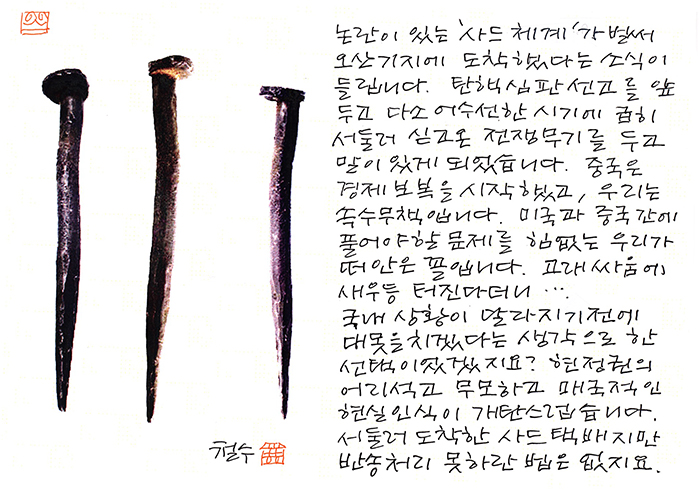 논란이 있는 '사드 체계'가 벌써
오산기지에 도착했다는 소식이
들립니다. 탄핵심판선고를 앞
두고 다소 어수선한 시기에 급히
서둘러 싣고온 전쟁무기를 두고
말이 있게 되었습니다. 중국은
경제보복을 시작했고, 우리는
속수무책입니다. 미국과 중국간에
풀어야할 문제를 힘없는 우리가
떠안은 꼴입니다. 고래싸움에
새우등 터진다더니 ….
국내 상황이 달라지기전에
대못을치겠다는 생각으로 한
선택이었겠지요? 현정권의
어리석고 무모하고 매국적인
현실인식이 개탄스럽습니다.
서둘러 도착한 사드택배지만
반송처리 못하란 법은 없지요.
철수